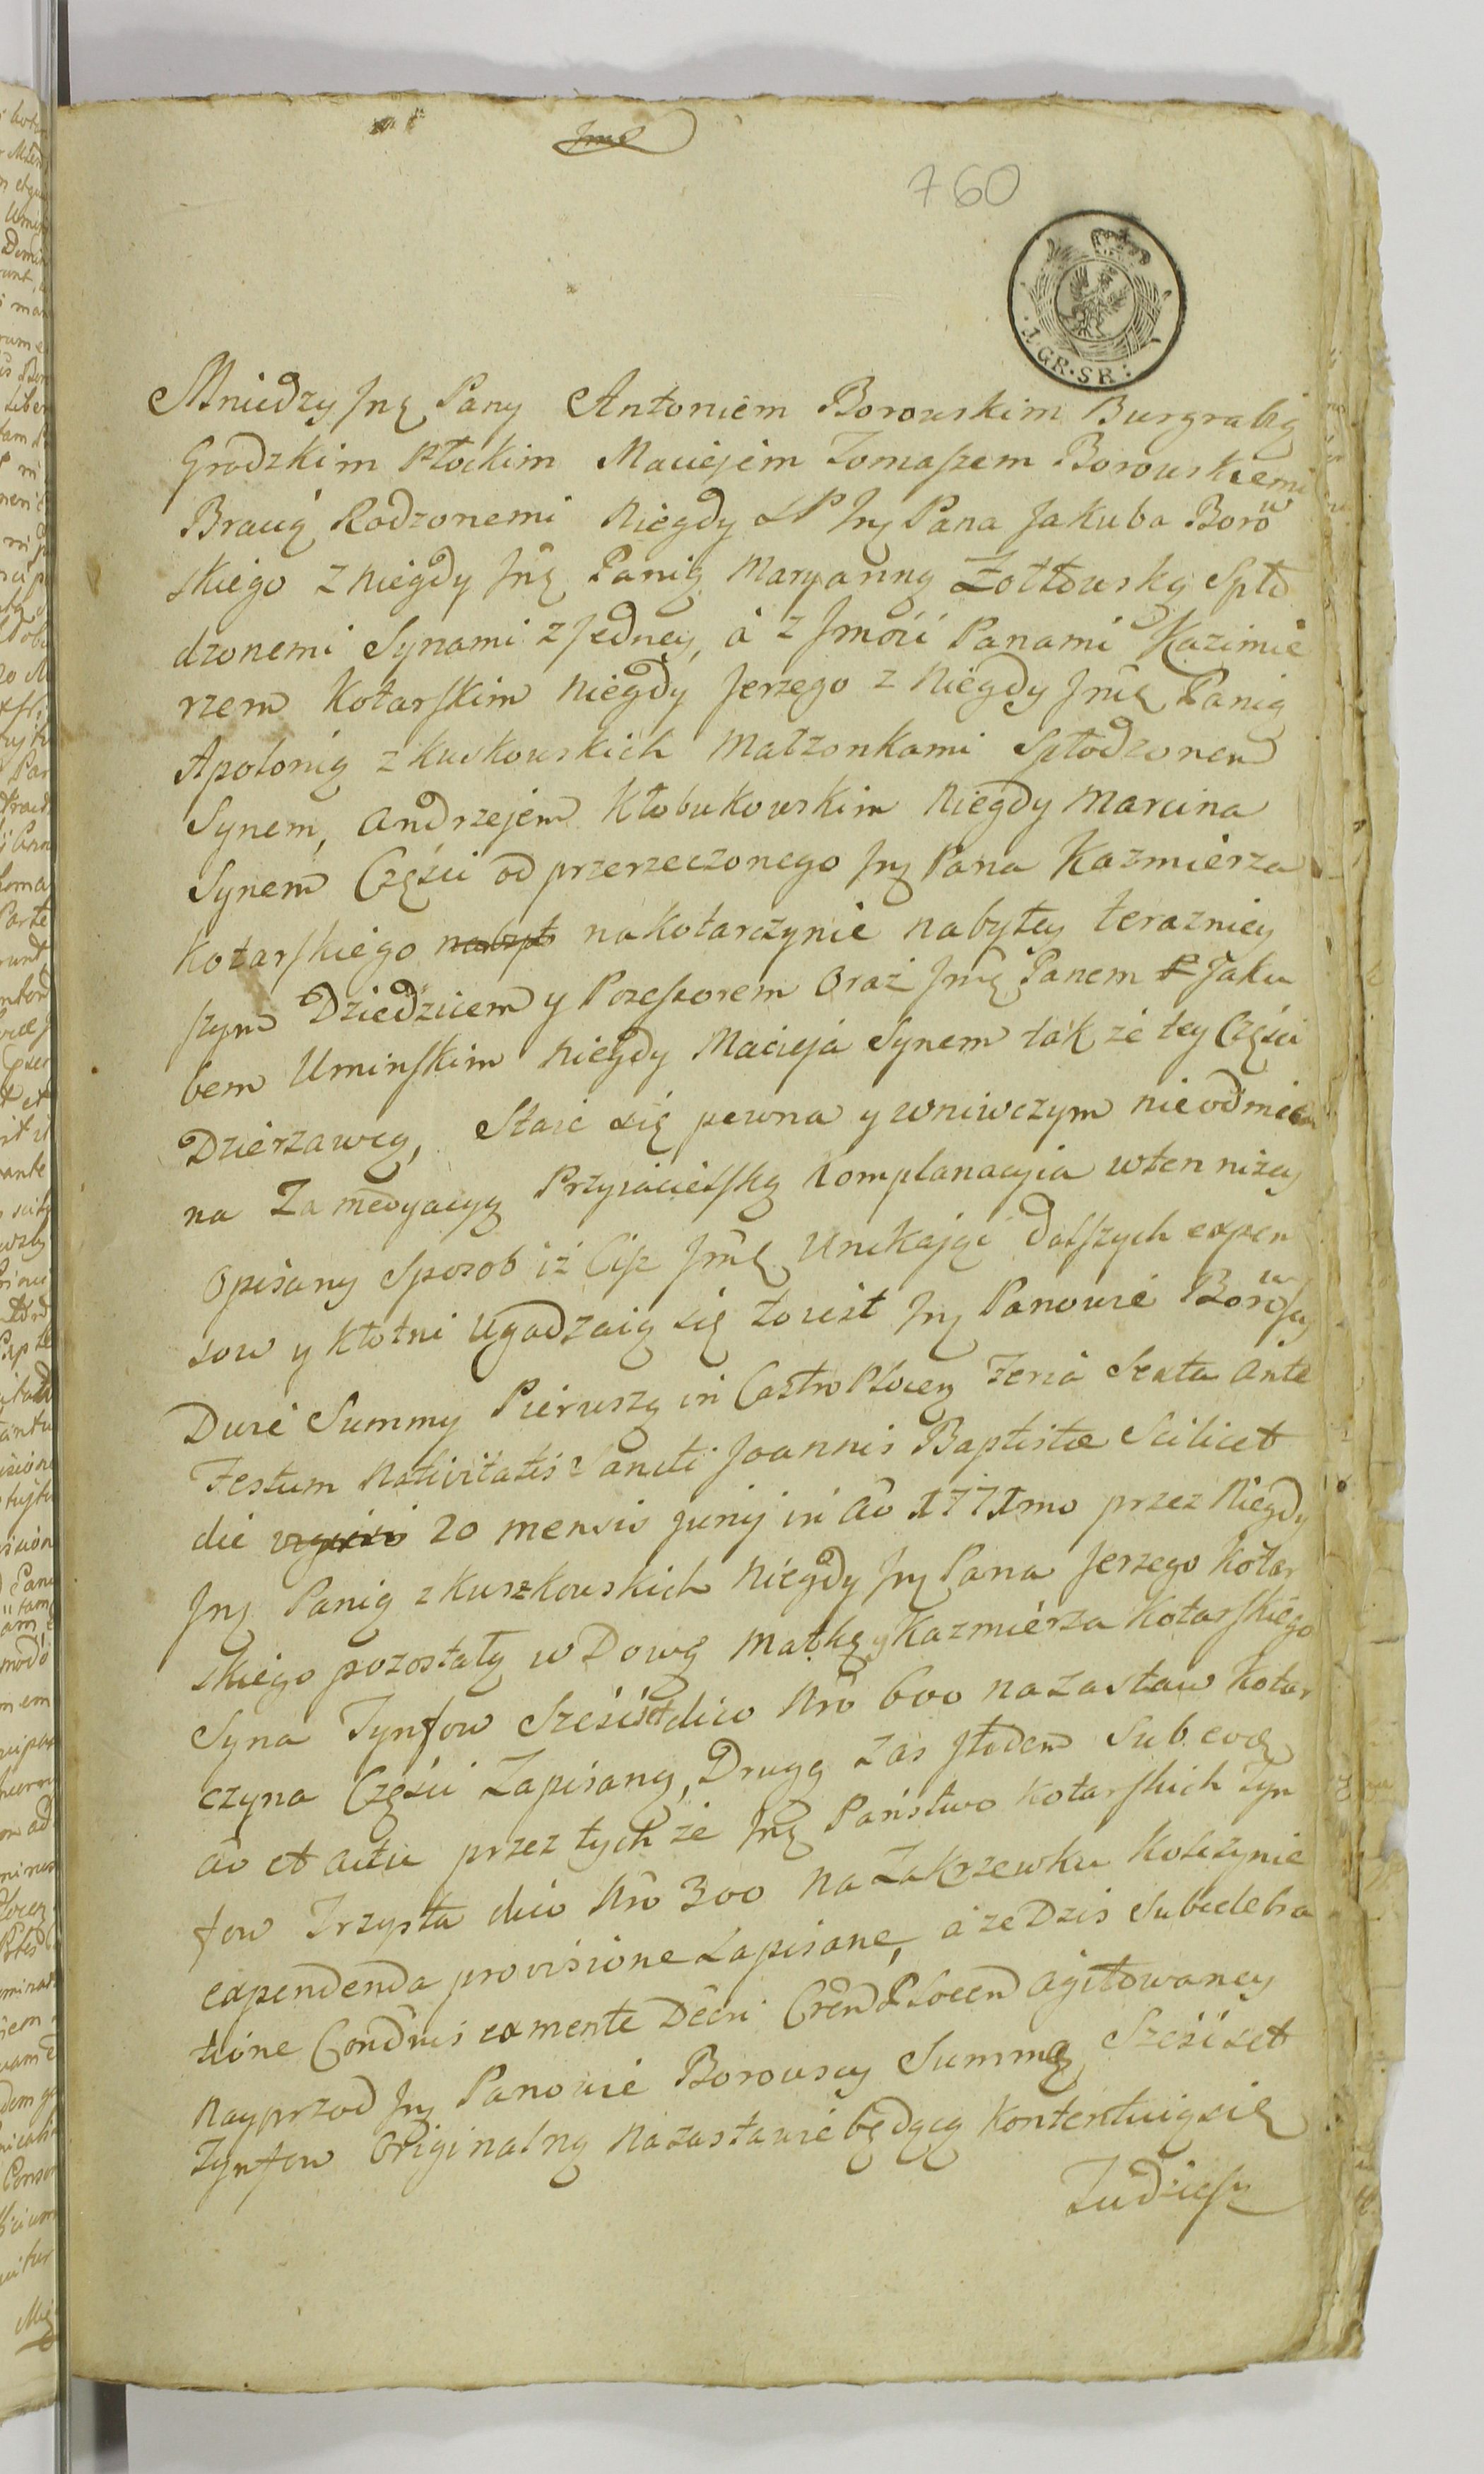 Jmę
760
1 GR. SR:
Mniedzy Jmę Pany Antoniem Borowskim Burgrabią
Grodzkim Płockim Maciejem Tomaszem Borowskiemi
Bracią Rodzonemi Niegdy SP Jmę Pana Jakuba Borow
skiego z niegdy Jmę Panią Maryanną Żołtowską Spło
dzonemi Synami z Jedney, á z Jmści Panami Kazimie
rzem Kotarskim niegdy Jerzego z Niegdy Jmę Panią
Apolonią z Kuskowskich Małżonkami Spłodzonem
Synem, Andrzejem Kłobukowskim Niegdy Marcina
Synem Części od przerzeczonego Jmę Pana Kazmierza
Kotarskiego nabyt na Kotarczynie nabytey terazniey
szym Dziedzicem y Possessorem Oraz Jmę Panem P Jaku
bem Uminskim niegdy Macieja Synem tak że tey Części
Dzierzawcą, Staie się pewna y wniwczym nieodmien
na Za medyacyą Przyiacielską Komplanacyia wten niżey
Opisany Sposob iż Ciż Jmę Unikając dalszych expen
sow y Kłotni Ugadzaią się to iest Jmę Panowie Borowscy
Dwie Summy Pierwszą in Castro Plocen Feria Sexta Ante
Festum Nativitatis Sancti Joannis Baptistæ Scilicet
die 20 mensis Junij in Ao 1771mo przez Niegdy
Jmę Panią z Kuszkowskich Niegdy Jmę Pana Jerzego Kotar
skiego pozostałą w Dowę Matkę y Kazmierza Kotarskiego
Syna Tynfow Sześćset dico Nro 600 na Zastaw Kotar
czyna Części Zapisaną, Drugą Zas Fłoden Sub eodem
Ao et actu przez tych że Jmę Państwo Kotarskich Tyn
fow Trzysta dico Nro 300 na Zakrzewku Kotczynie
expendenda provisione Zapisane, á że Dzis Subdeleba
tione Condnis ex mente Decri Cren Plocen agitowaney
Nayprzod Jmę Panowie Borowscy Summą Sześćset
Tynfow Originalną na Zastawie będącą Kontentuią się
Tudziesz